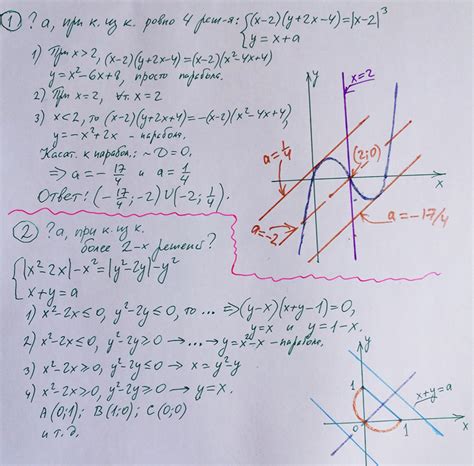 ① ? a, при к. из к. ровно 4 реш-я: { (x-2)(y+2x-4)=|x-2|³
y = x+a
1) При x>2, (x-2)(y+2x-4)=(x-2)(x²-4x+4)
y=x²-6x+8, просто парабола.
2) При x=2, ∀т. x=2
3) x<2, то (x-2)(y+2x+4)=-(x-2)(x²-4x+4),
y=-x²+2x - парабола.
Касат. к парабол.: ~ D=0.
⇒ a=-17/4 и a=1/4
Ответ: (-17/4;-2)∪(-2;1/4).
y
x=2
a=1/4
(2;0)
x
a=-2
a=-17/4
② ?a, при к. из к.
более 2-х решений?
{ |x²-2x|-x²=|y²-2y|-y²
x+y=a
1) x²-2x≤0, y²-2y≤0, то ... ⇒(y-x)(x+y-1)=0,
y=x и y=1-x.
2) x²-2x≤0, y²-2y≥0 → ... → y=x²-x - парабола.
3) x²-2x≥0, y²-2y≤0 → x=y²-y
4) x²-2x≥0, y²-2y≥0 → y=x.
A(0;1); B(1;0); C(0;0)
и т.д.
y
x+y=a
1
0
1
x